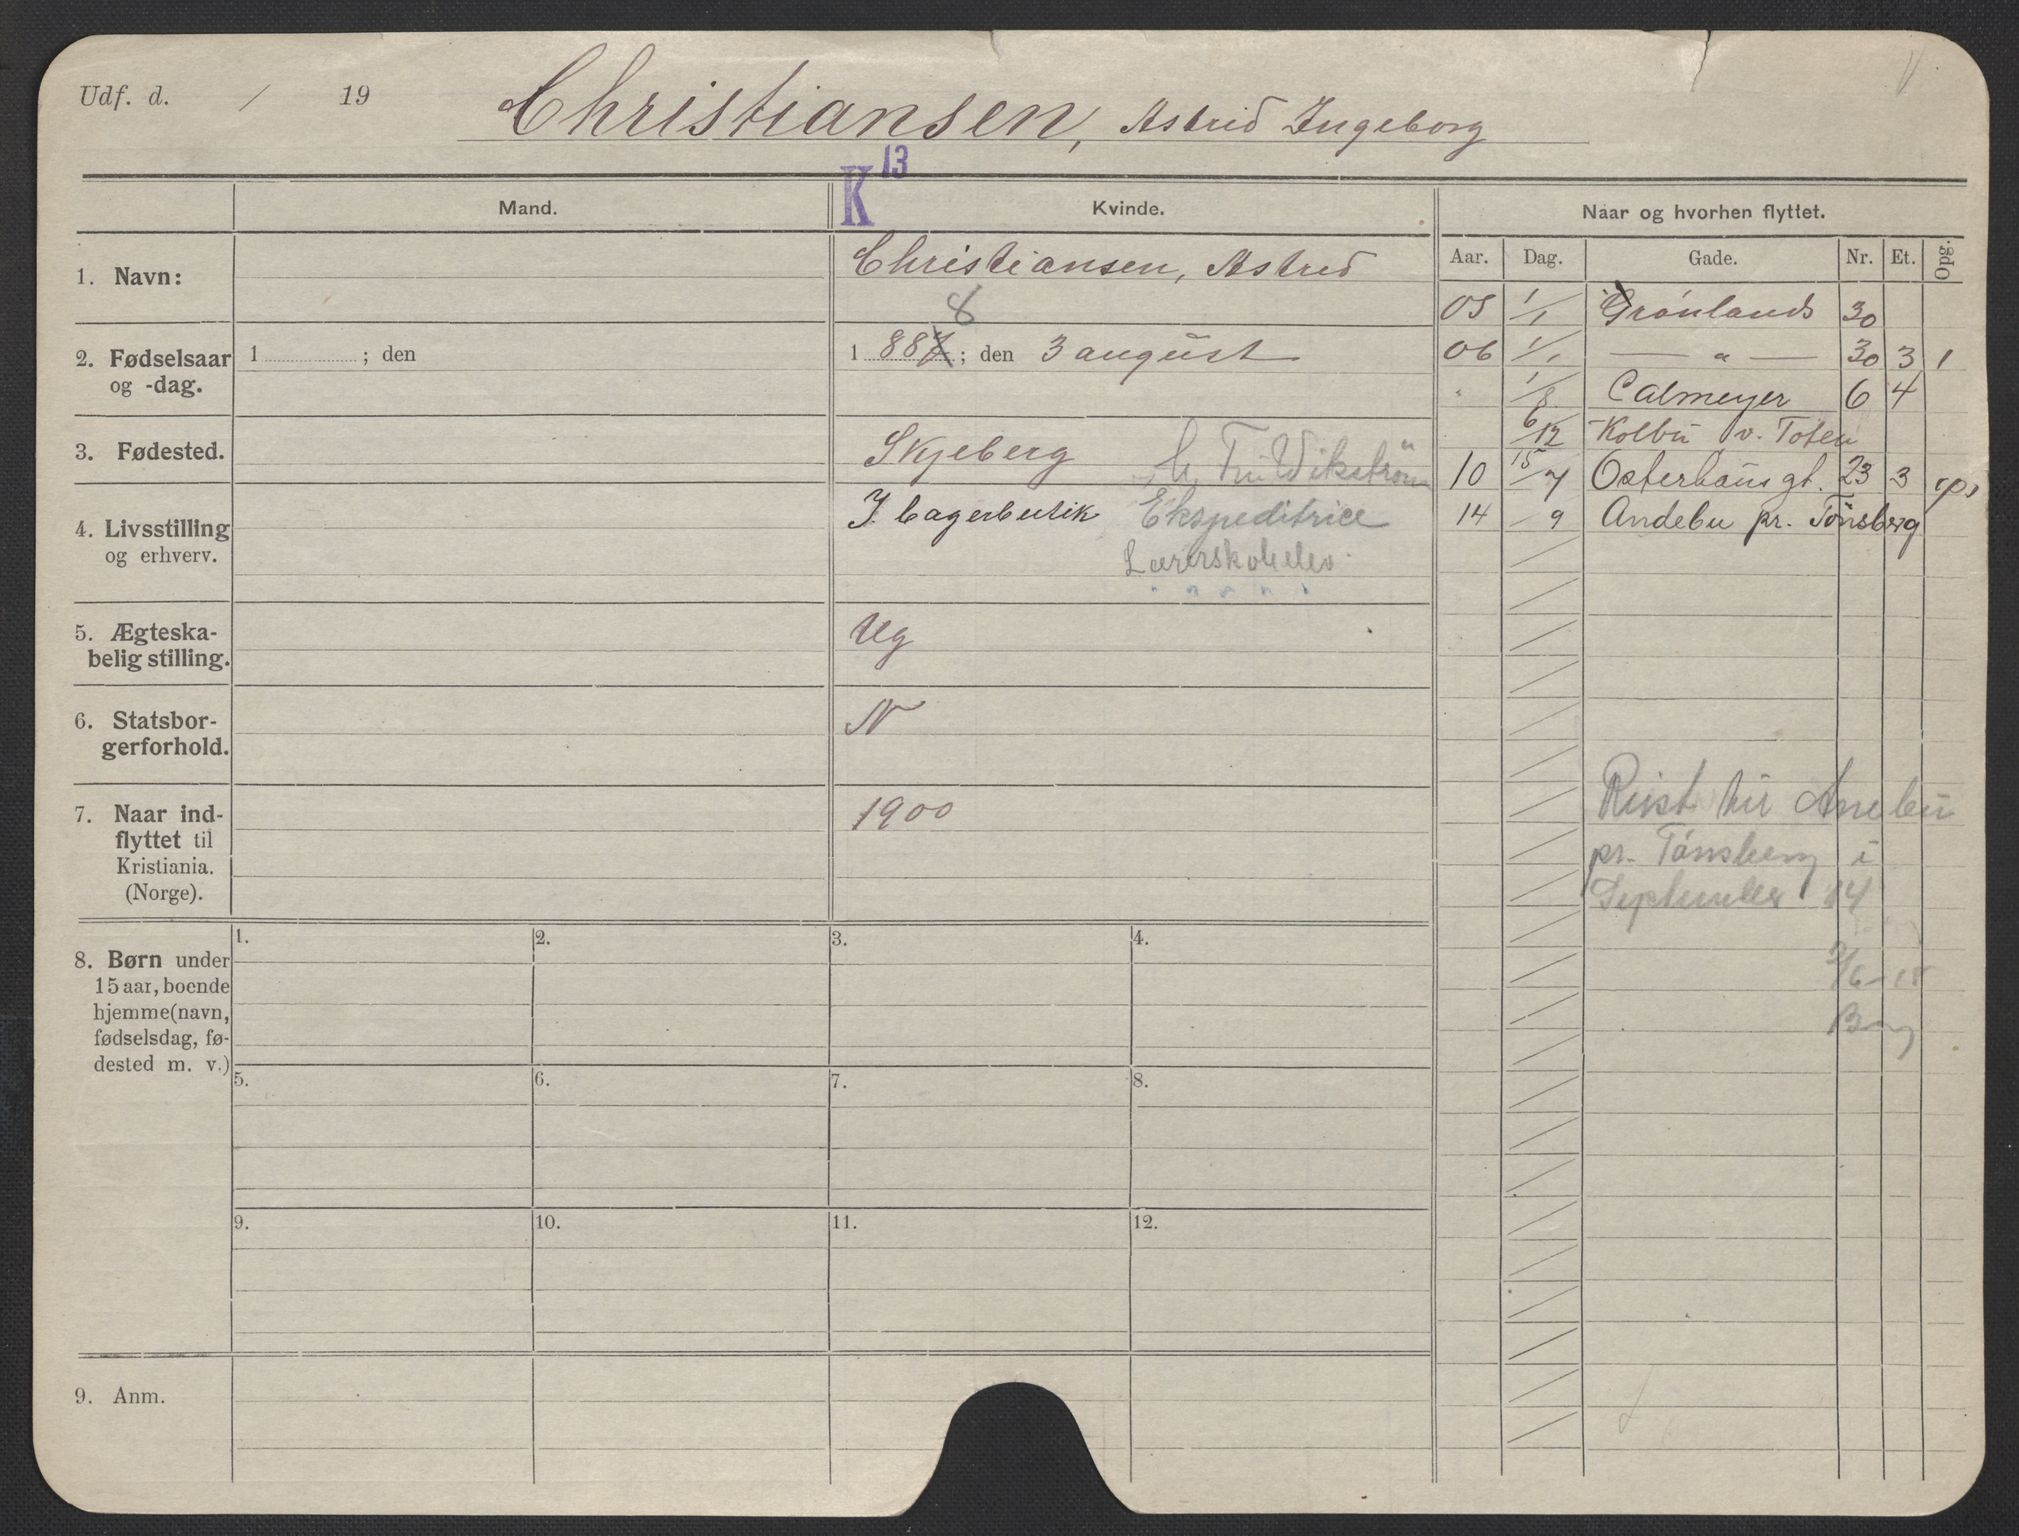 Udf. d. / 19
Christiansen, Astrid Ingeborg
K 13
Mand.
Kvinde.
Naar og hvorhen flyttet.
Aar. Dag. Gade. Nr. Et. Opg.
1. Navn:
Christiansen, Astrid
2. Fødselsaar og -dag.
1 ; den
8
1 887 ; den 3 august
3. Fødested.
Skjeberg
Wikström
4. Livsstilling og erhverv.
I bagerbutik Ekspeditrice
Lærerskoleelev
" " " " "
5. Ægteska-
belig stilling.
Ug
6. Statsbor-
gerforhold.
N
7. Naar ind-
flyttet til
Kristiania.
(Norge).
1900
05 1/1 Grønlands 30
06 1/1 — " — 30 3 1
" 1/8 Calmeyer 6 4
6/12 Kolbu v. Toten
10 15/7 Osterhausgt. 23 3 ops
14 /9 Andebu pr. Tönsberg
Reist til Anebu
pr. Tønsberg i
September 14
2/6-18
Berg
8. Børn under
15 aar, boende
hjemme (navn,
fødselsdag, fø-
dested m. v.)
1. 2. 3. 4.
5. 6. 7. 8.
9. 10. 11. 12.
9. Anm.